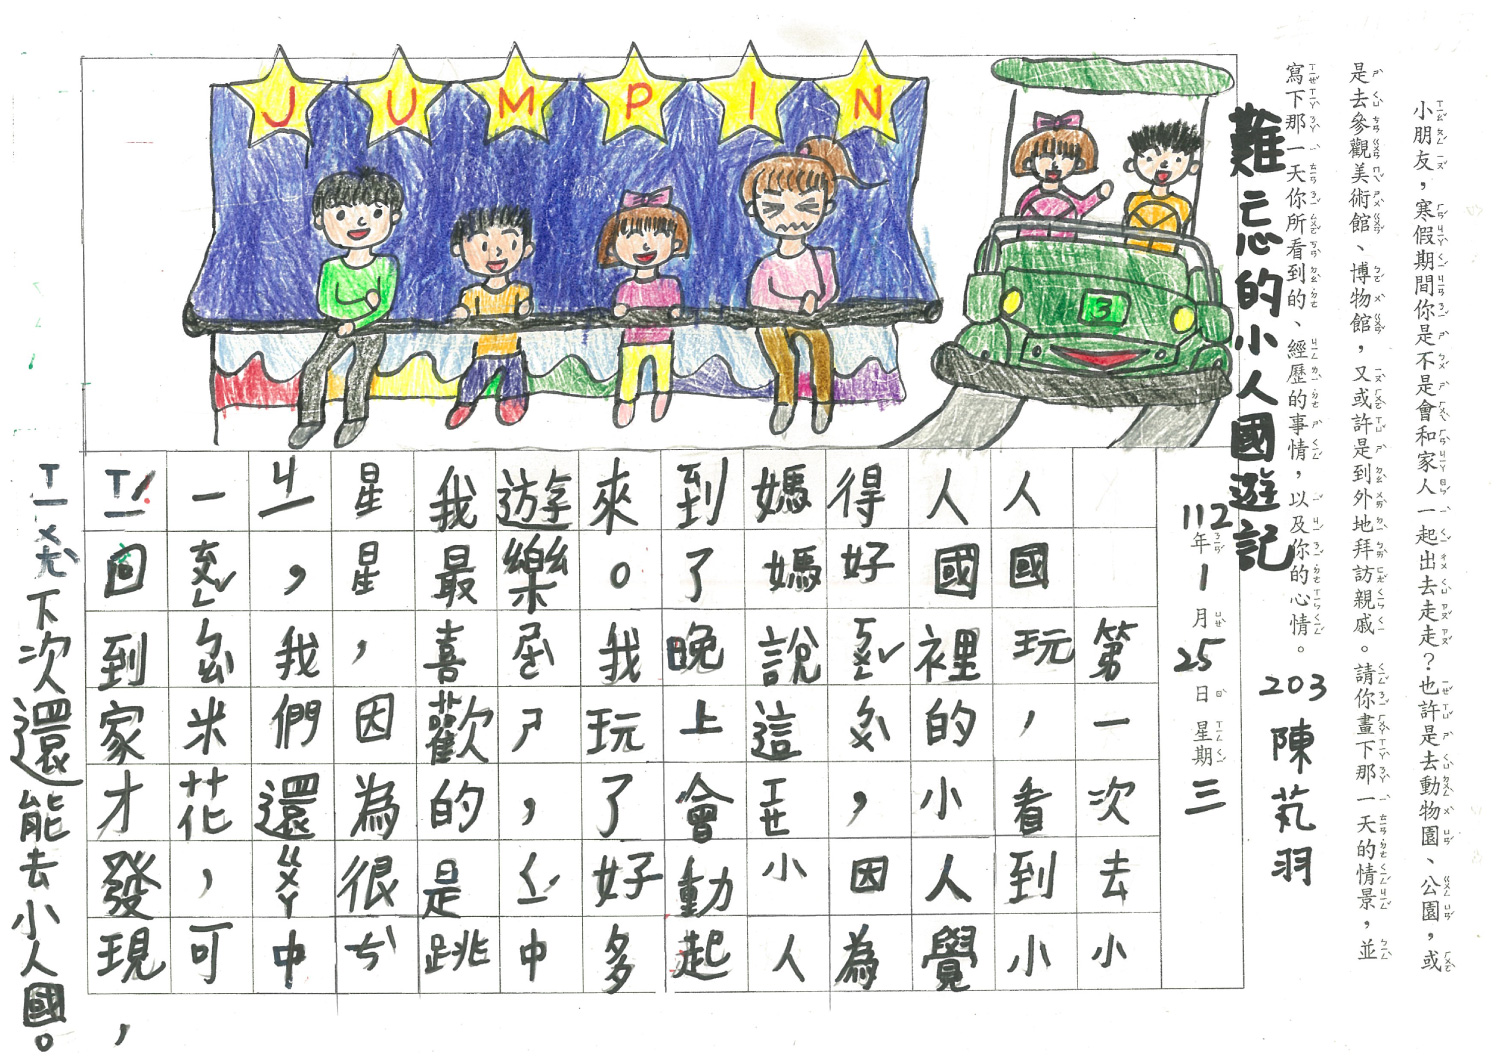 小朋友，寒假期間你是不是會和家人一起出去走走？也許是去動物園、公園，或
是去參觀美術館、博物館，又或許是到外地拜訪親戚。請你畫下那一天的情景，並
寫下那一天你所看到的、經歷的事情，以及你的心情。
難忘的小人國遊記
203陳芃羽
112年1月25日星期三
JUMPIN
3
第一次去小
人國玩，看到小
人國裡的小人覺
得好，因為
媽媽說這ㄒㄧㄝ小人
到了晚上會動起
來。我玩了好多
遊樂ㄕ，ㄑㄧˊ中
我最喜歡的是跳
星星，因為很ㄘˋ
ㄐㄧ，我們還ㄍㄨㄚ中
一米花，可
ㄒㄧˊ回到家才發現，
ㄒㄧㄨㄤˋ下次還能去小人國。